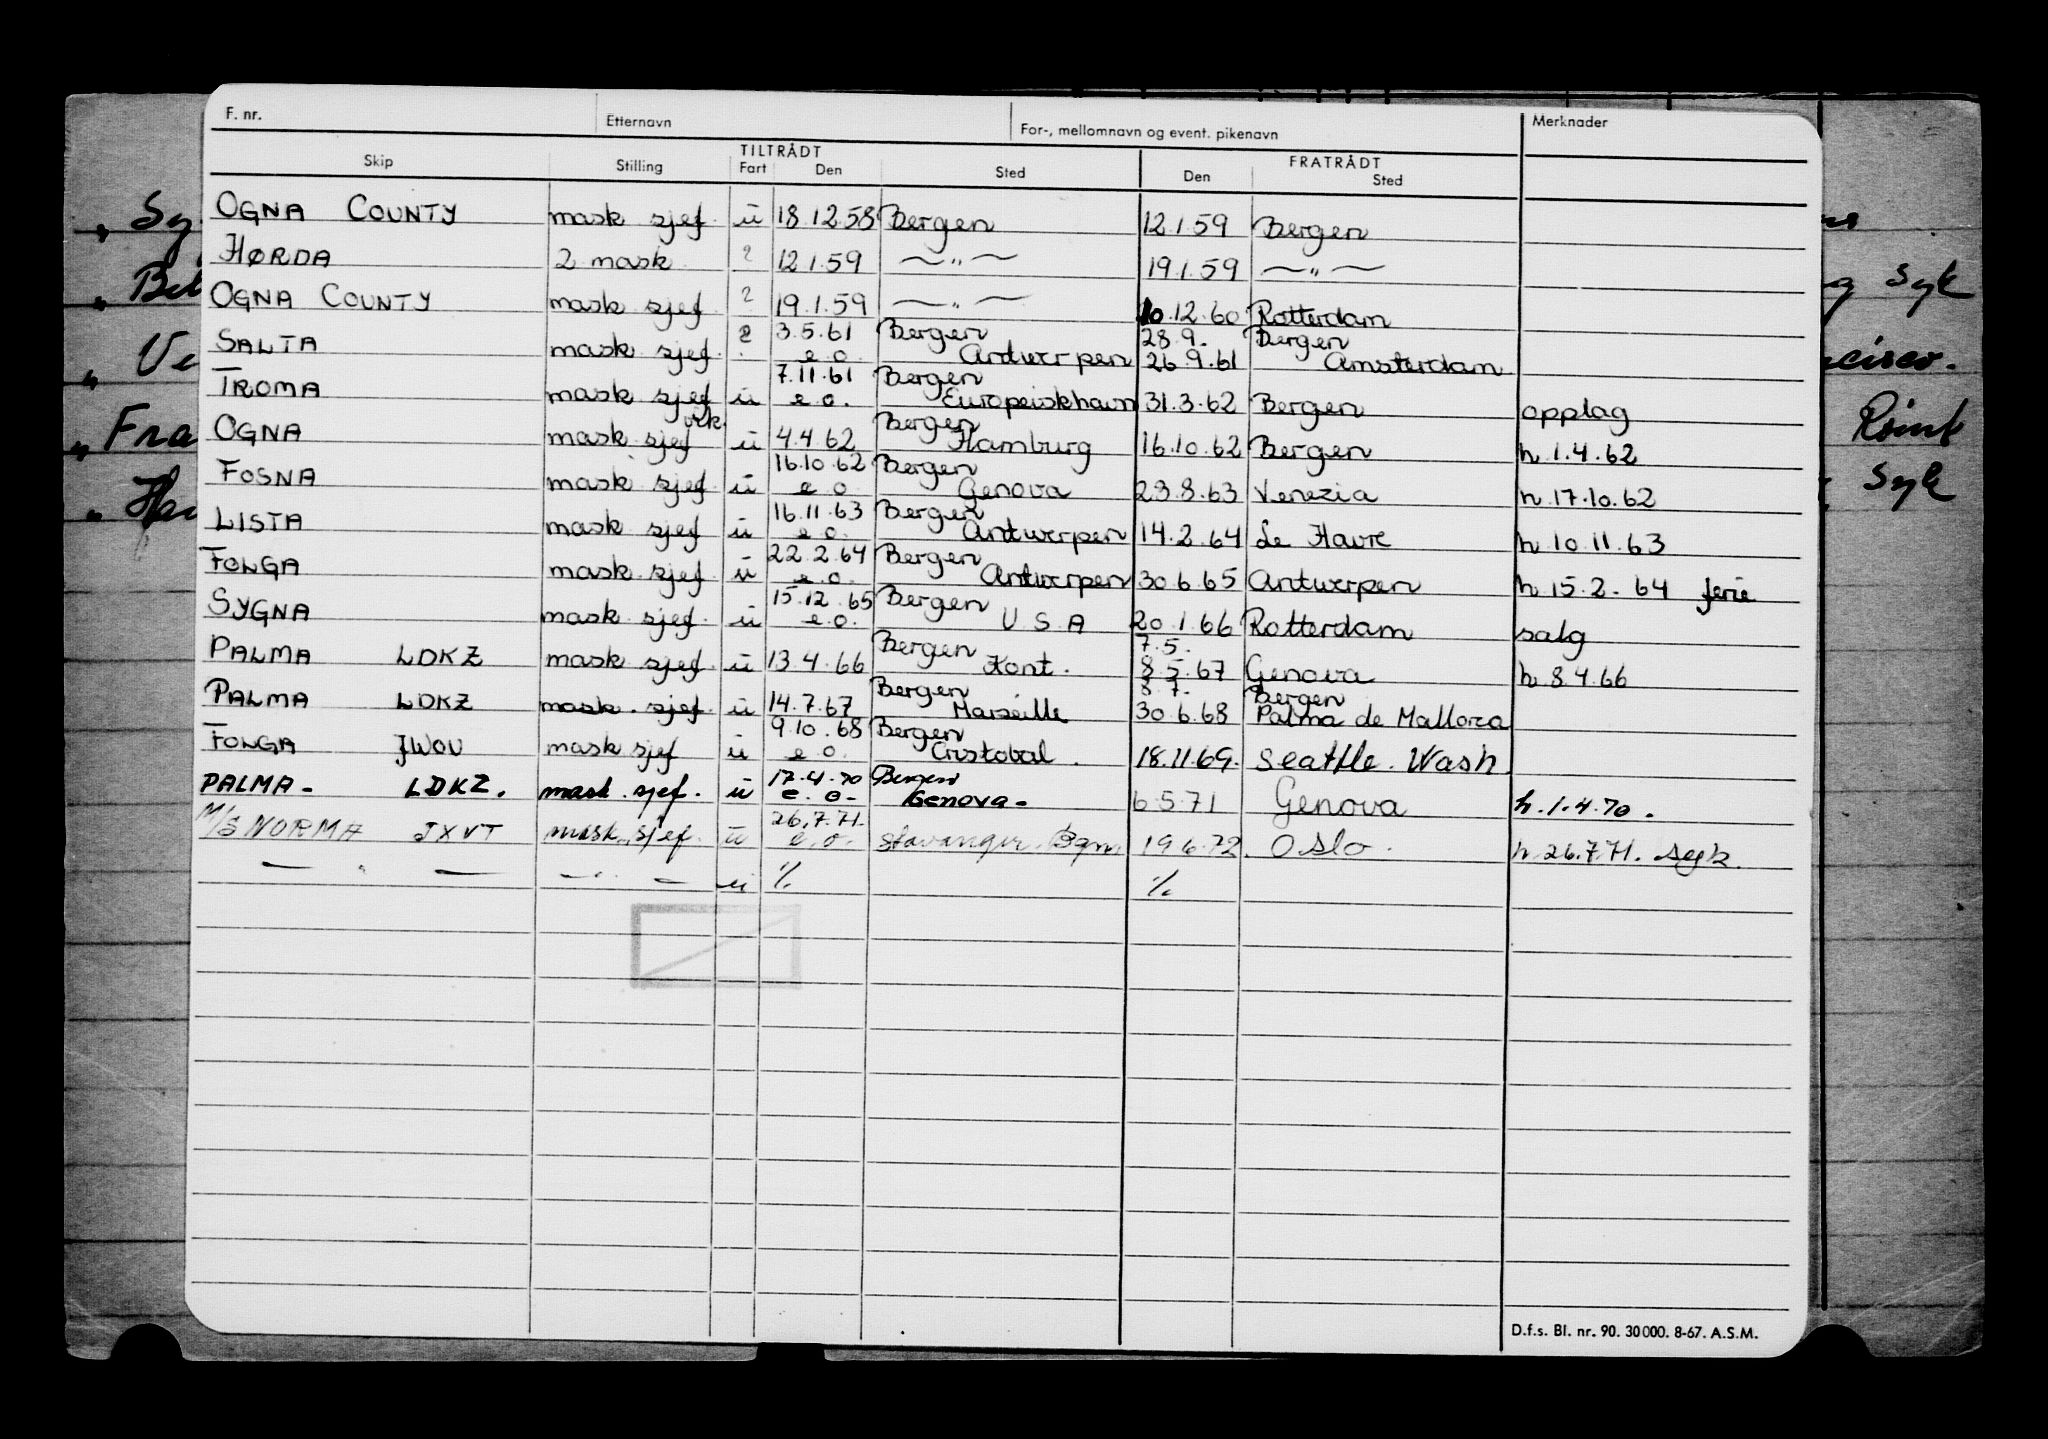 F. nr. Etternavn For-, mellomnavn og event. pikenavn Merknader
TILTRÅDT FRATRÅDT
Skip Stilling Fart Den Sted Den Sted
OGNA COUNTY mask sjef. ü 18.12.58 Bergen 12.1.59 Bergen
HØRDA 2 mask ? 12.1.59 —„— 19.1.59 —„—
OGNA COUNTY mask sjef ? 19.1.59 —„— 10.12.60 Rotterdam
3.5.61 Bergen 28.9. Bergen
SALTA mask sjef. ? e.o. Antwerpen 26.9.61 Amsterdam
7.11.61 Bergen
TROMA mask sjef ü e.o. Europeiskhavn 31.3.62 Bergen opplag
vik. Bergen
OGNA mask sjef ü 4.4.62 Hamburg 16.10.62 Bergen h 1.4.62
16.10.62 Bergen
FOSNA mask sjef. ü e.o. Genova 23.8.63 Venezia h 17.10.62
16.11.63 Bergen
LISTA mask sjef ü e.o. Antwerpen 14.2.64 Le Havre h 10.11.63
22.2.64 Bergen
FOLGA mask sjef. ü e.o. Antwerpen 30.6.65 Antwerpen h 15.2.64 ferie
15.12.65 Bergen
SYGNA mask sjef. ü e.o. U S A 20.1.66 Rotterdam salg
Bergen 7.5.
PALMA LDKZ mask sjef. ü 13.4.66 Kont. 8.5.67 Genova h 8.4.66
Bergen 8.7. Bergen
PALMA LDKZ mask. sjef. ü 14.7.67 Marseille 30.6.68 Palma de Mallorca
9.10.68 Bergen
FOLGA JWOV mask sjef ü e.o. Cristobal. 18.11.69. Seattle. Wash.
17.4.70 Bergen
PALMA - LDKZ. mask. sjef. ü e.o- Genova - 6.5.71 Genova h. 1.4.70.
26.7.71.
M/S NORMA JXVT mask. sjef. ü e.o. Stavanger. Bgn. 19.6.72. Oslo. h 26.7.71. syk.
— „ — — „ — ü ⁒ ⁒
D.f.s. Bl. nr. 90. 30000. 8-67. A.S.M.
" Sy
" Bet syk
" Ve cisco.
" Fra
" syk